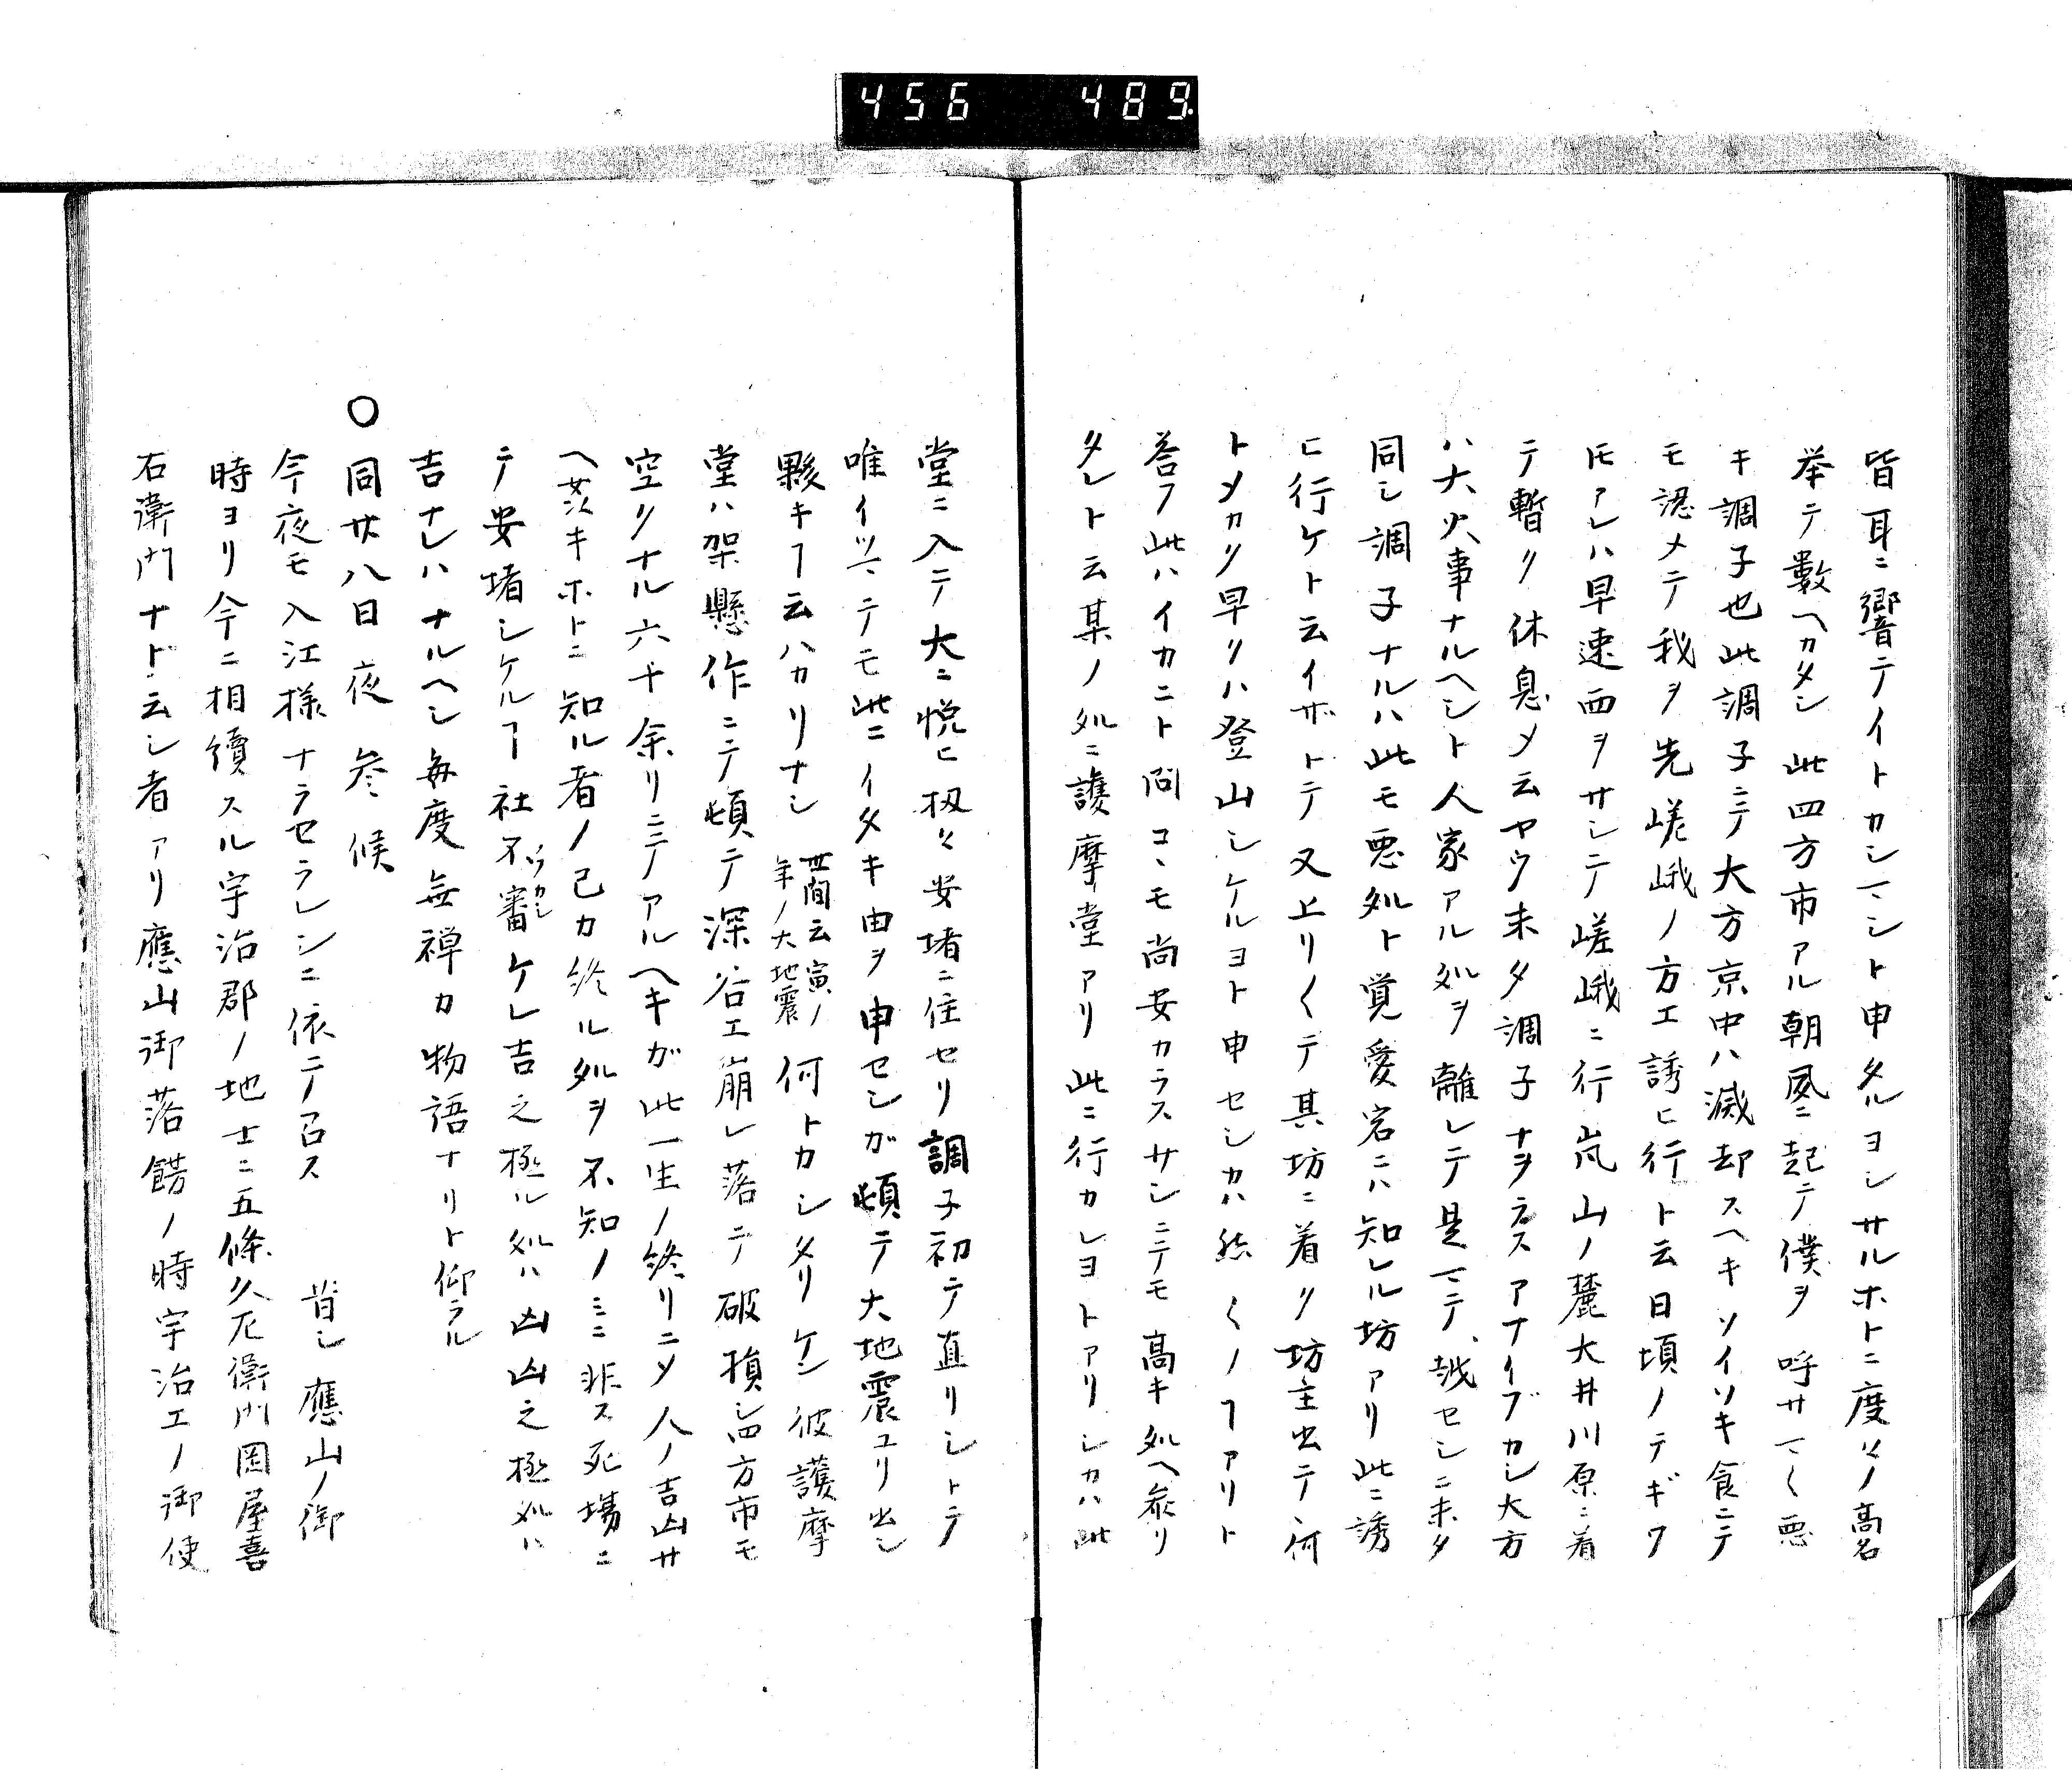 456 489.
皆耳ニ響テイトカシマシト申タルヨシサルホトニ度々ノ高名
挙テ數ヘカタシ此四方市アル朝風ニ起テ僕ヲ呼サマ〱悪
キ調子也此調子ニテ大方京中ハ滅却スヘキソイソキ食ニテ
モ認メテ我ヲ先嵯峨ノ方エ誘ヒ行ト云日頃ノテギワ
𪜈アレハ早速両ヲサシテ嵯峨ニ行嵐山ノ麓大井川原ニ着
テ暫ク休息メ云ヤウ未タ調子ナヲラスアナイブカシ大方
ハ大火事ナルヘシト人家アル処ヲ離レテ是マテ越セシニ未タ
同シ調子ナルハ此モ悪処ト覚愛宕ニハ知レル坊アリ此ニ誘
ヒ行ケト云イサトテ又上リ〱テ其坊ニ着ク坊主出テ何
トメカク早クハ登山シケルヨト申セシカハ然〱ノヿアリト
答フ此ハイカニト問コヽモ尚安カラスサレニテモ高キ処ヘ参リ
タシト云某ノ処ニ護摩堂アリ此ニ行カレヨトアリシカハ此
堂ニ入テ大ニ悦ヒ扨々安堵ニ住セリ調子初テ直リシトテ
唯イツマテモ此ニイタキ由ヲ申セシが頓テ大地震ユリ出シ
夥キヿ云ハカリナシ世間云寅ノ年ノ大地震何トカシタリケン彼護摩
堂ハ架懸作ニテ頓テ深谷エ崩レ落テ破損シ四方市モ
空クナル六十余リニテアルヘキが此一生ノ終リニメ人ノ吉凶サ
ヘ茨キホトニ知ル者ノ己カ終ル処ヲ不知ノミニ非ス死場ニ
テ安堵シケルヿ社不審イフカシケレ吉之極ル処ハ凶凶之極処ハ
吉ナレハナルヘシ毎度無禅カ物語ナリト仰ラル
〇同廿八日夜参候
今夜モ入江様ナラセラレシニ依テ召ス 昔シ應山ノ御
時ヨリ今ニ相續スル宇治郡ノ地士ニ五條久左衛門岡屋喜
右衛門ナド云シ者アリ應山御落餝ノ時宇治エノ御使